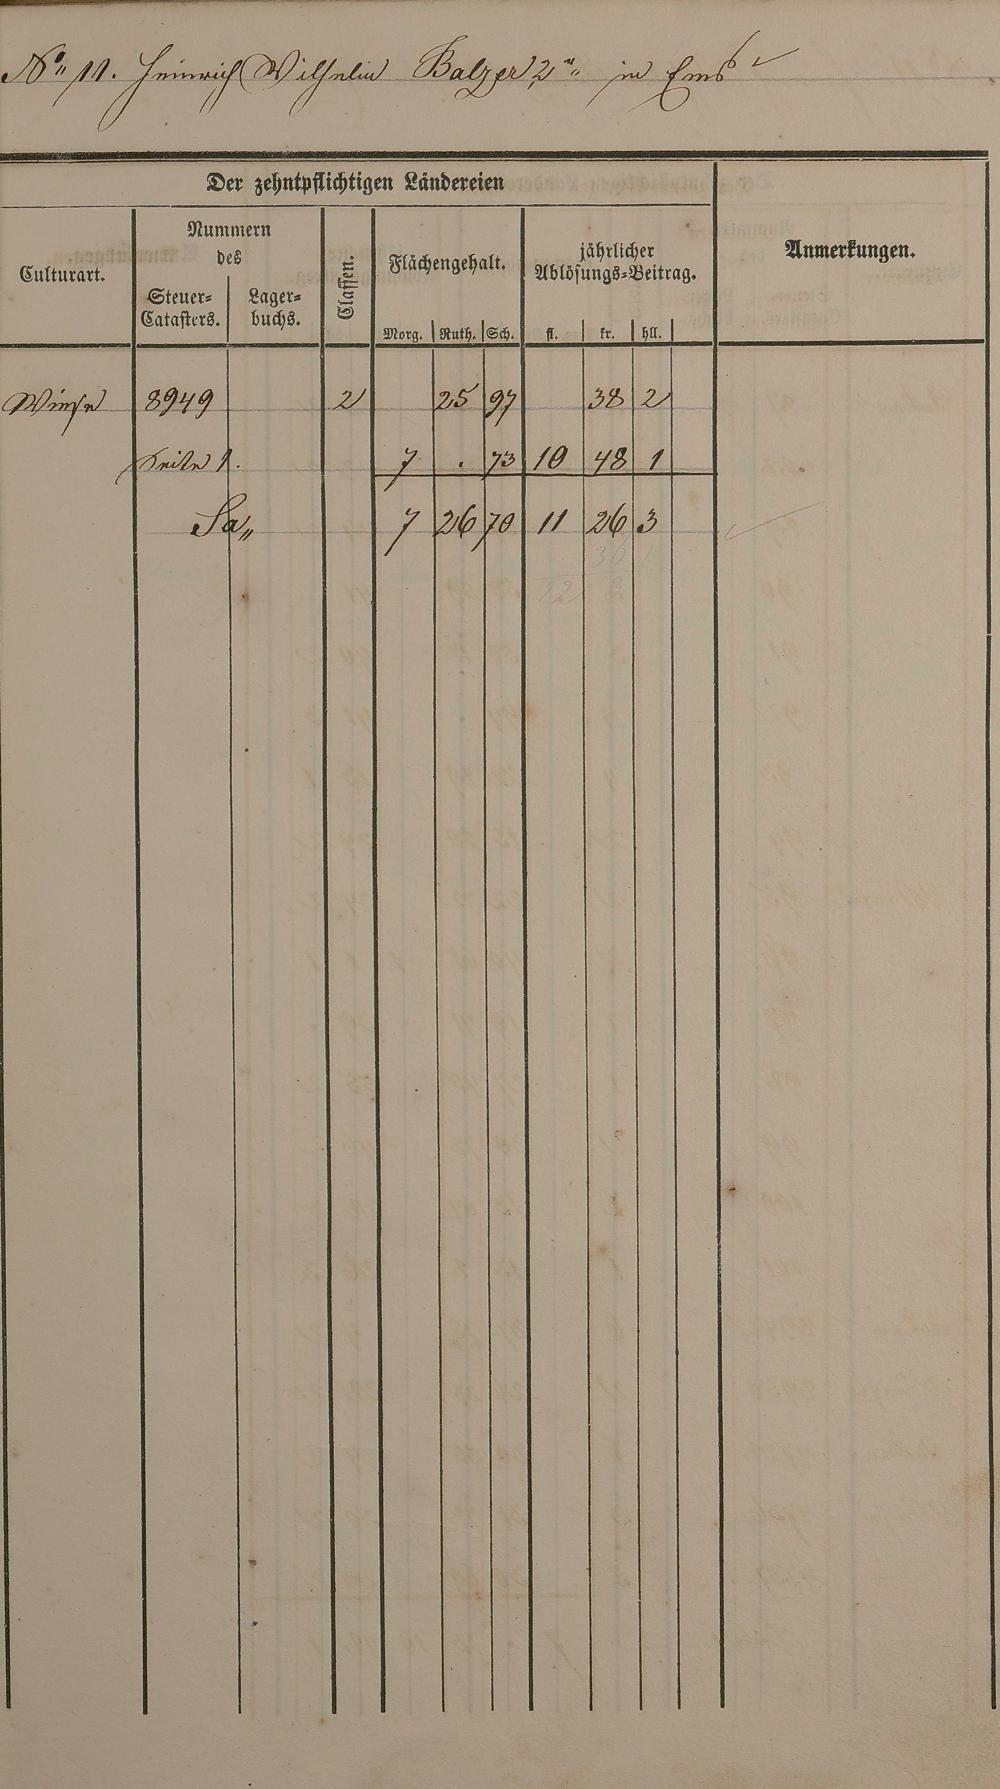 No 11. Heinrich Wilhelm Balzer 2r in Ems
Der zehntpflichtigen Ländereien
Culturart.
Nummern
des
Steuer-
Catasters.
Lager-
buchs.
Classen.
Flächengehalt.
Morg. Ruth. Sch.
jährlicher
Ablösungs-Beitrag.
fl. kr. hll.
Anmerkungen.
Wiese 8949 2 25 97 38 2
Seite 1. 7 . 73 10 48 1
Sa„ 7 26 70 11 26 3
36 1
12 2